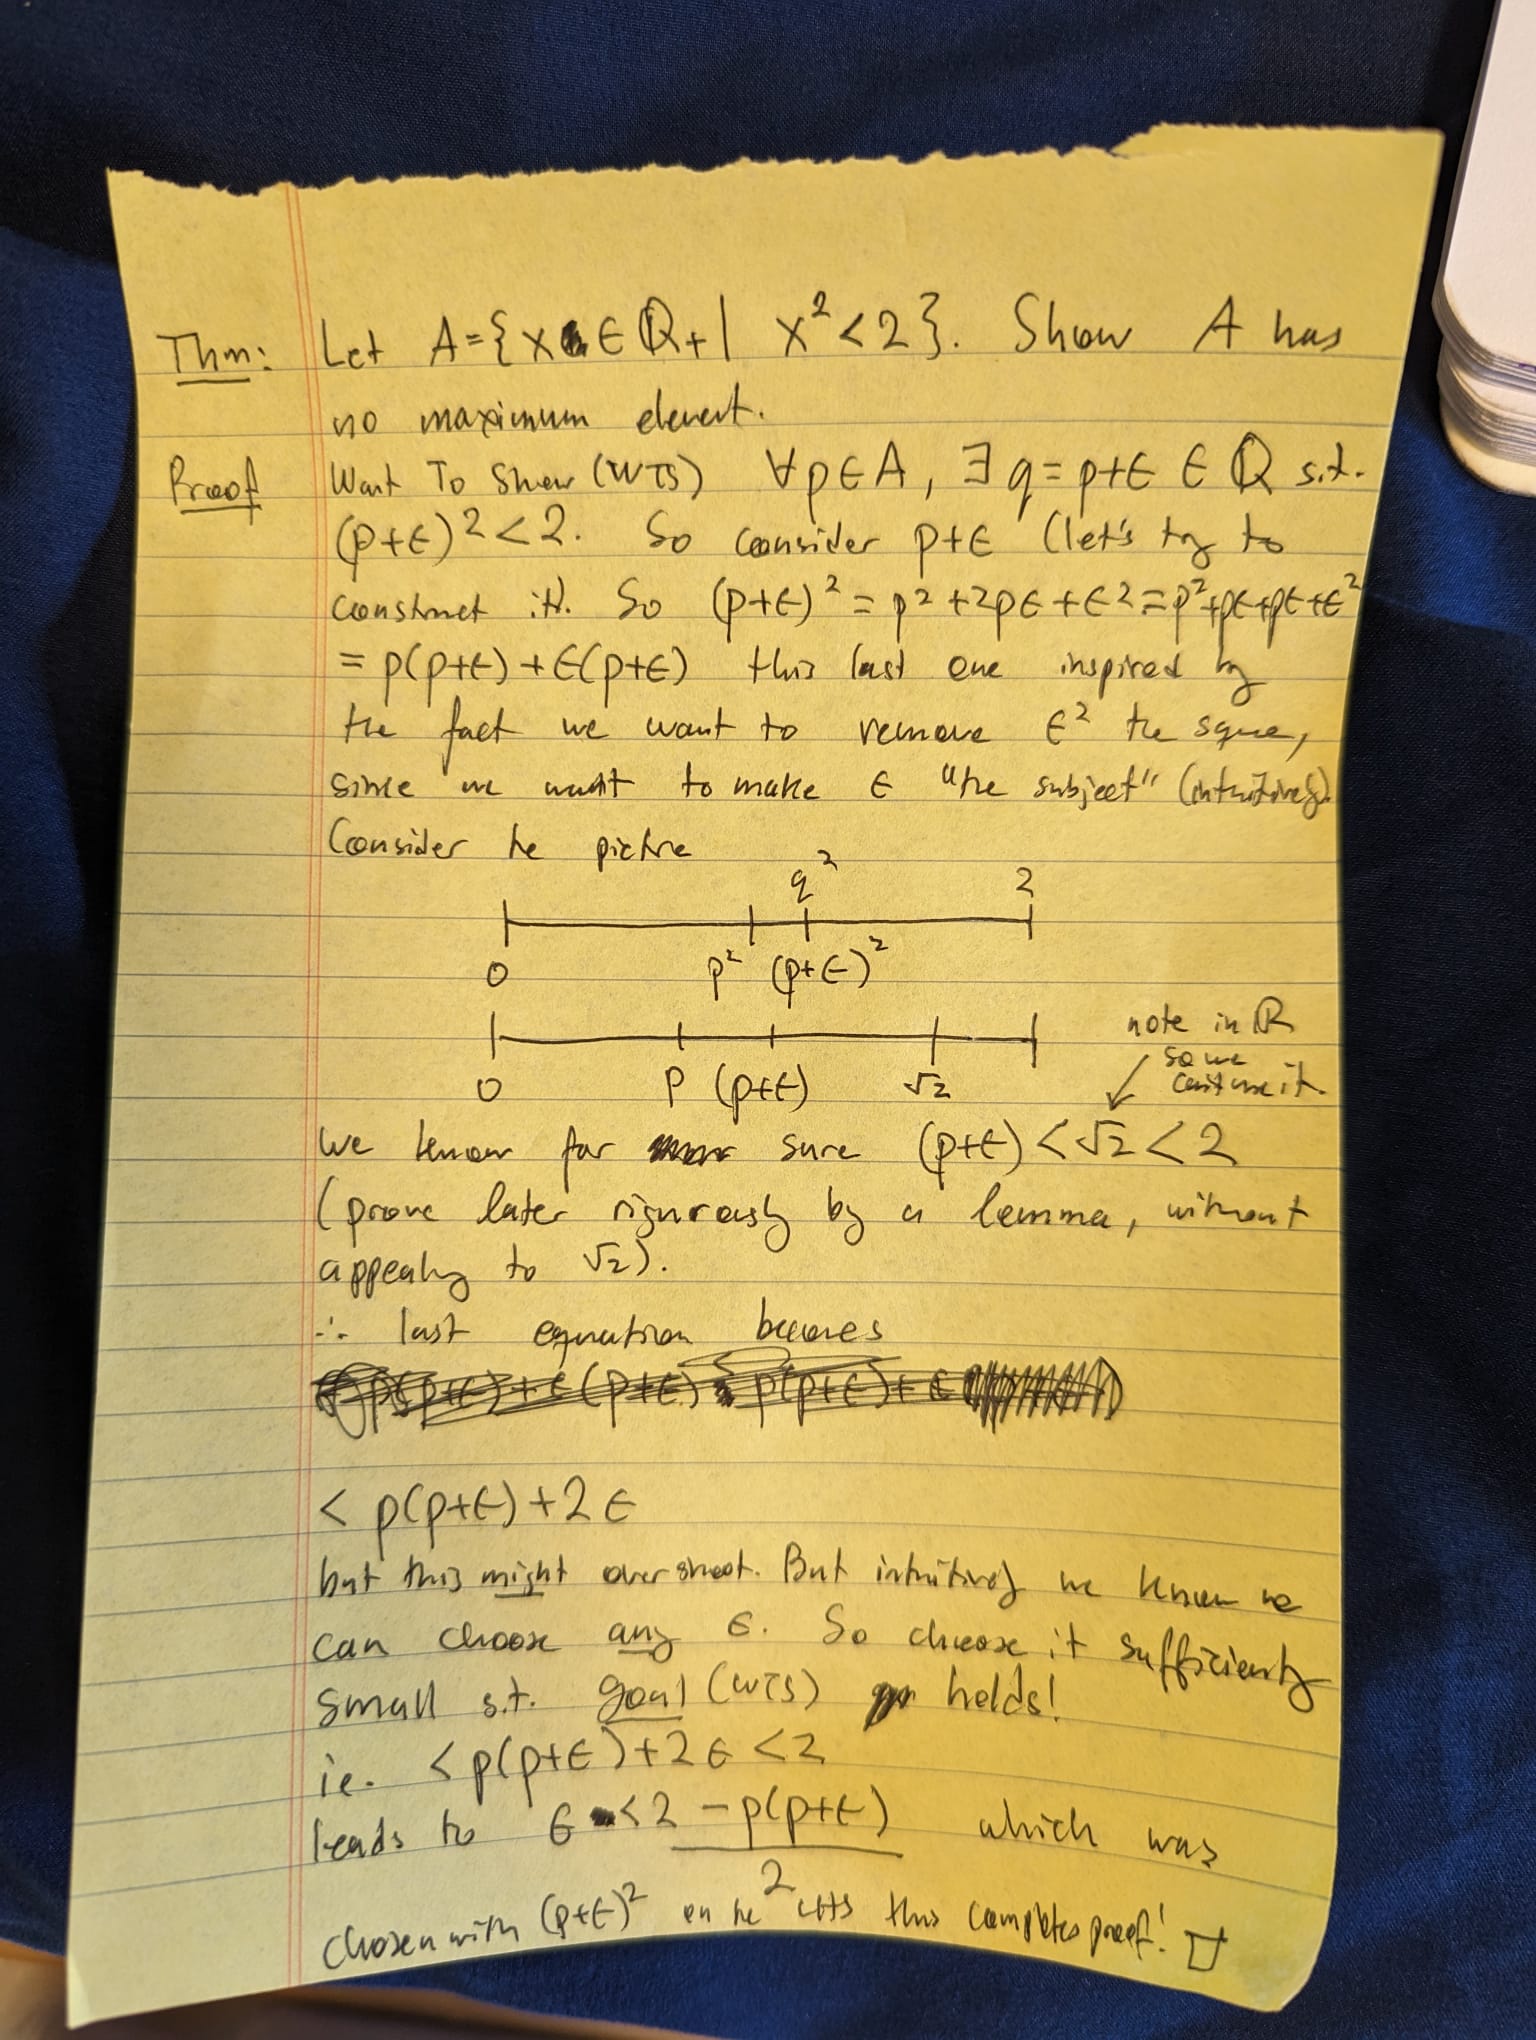 Thm: Let A={x ∈ ℚ+ | x² < 2}. Show A has
no maximum element.
Proof Want To Show (WTS) ∀p∈A, ∃ q = p+ϵ ∈ ℚ s.t.
(p+ϵ)² < 2. So consider p+ϵ (let's try to
construct it). So (p+ϵ)² = p² + 2pϵ + ϵ² = p²+pϵ+pϵ+ϵ²
= p(p+ϵ) + ϵ(p+ϵ) this last one inspired by
the fact we want to remove ϵ² the squre,
since we want to make ϵ "the subject" (intuitively).
Consider he picture
q² 2
0 p² (p+ϵ)²
0 p (p+ϵ) √2
note in ℝ
so we
can't use it.
We know for sure (p+ϵ) < √2 < 2
(prove later rigorously by a lemma, without
appealing to √2).
∴ last equation becomes
p(p+ϵ) + ϵ(p+ϵ) p(p+ϵ) + ϵ
< p(p+ϵ) + 2ϵ
but this might over shoot. But intuitively we know we
can choose any ϵ. So choose it sufficiently
small s.t. goal (WTS) holds!
ie. < p(p+ϵ) + 2ϵ < 2
leads to ϵ < 2 - p(p+ϵ) which was
2
chosen with (p+ϵ)² on he LHS thus completes proof! □